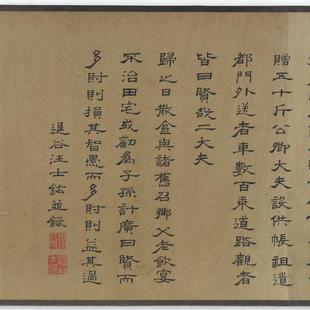 贈五十斤公卿大夫設供帳祖道
都門外送者車數百乘道路觀者
皆曰賢哉二大夫
歸之日散金與諸舊召鄉父老飲宴
不治田宅或勸為子孫計廣曰賢而
多財則損其智愚而多財則益其過
退谷汪士鋐並錄